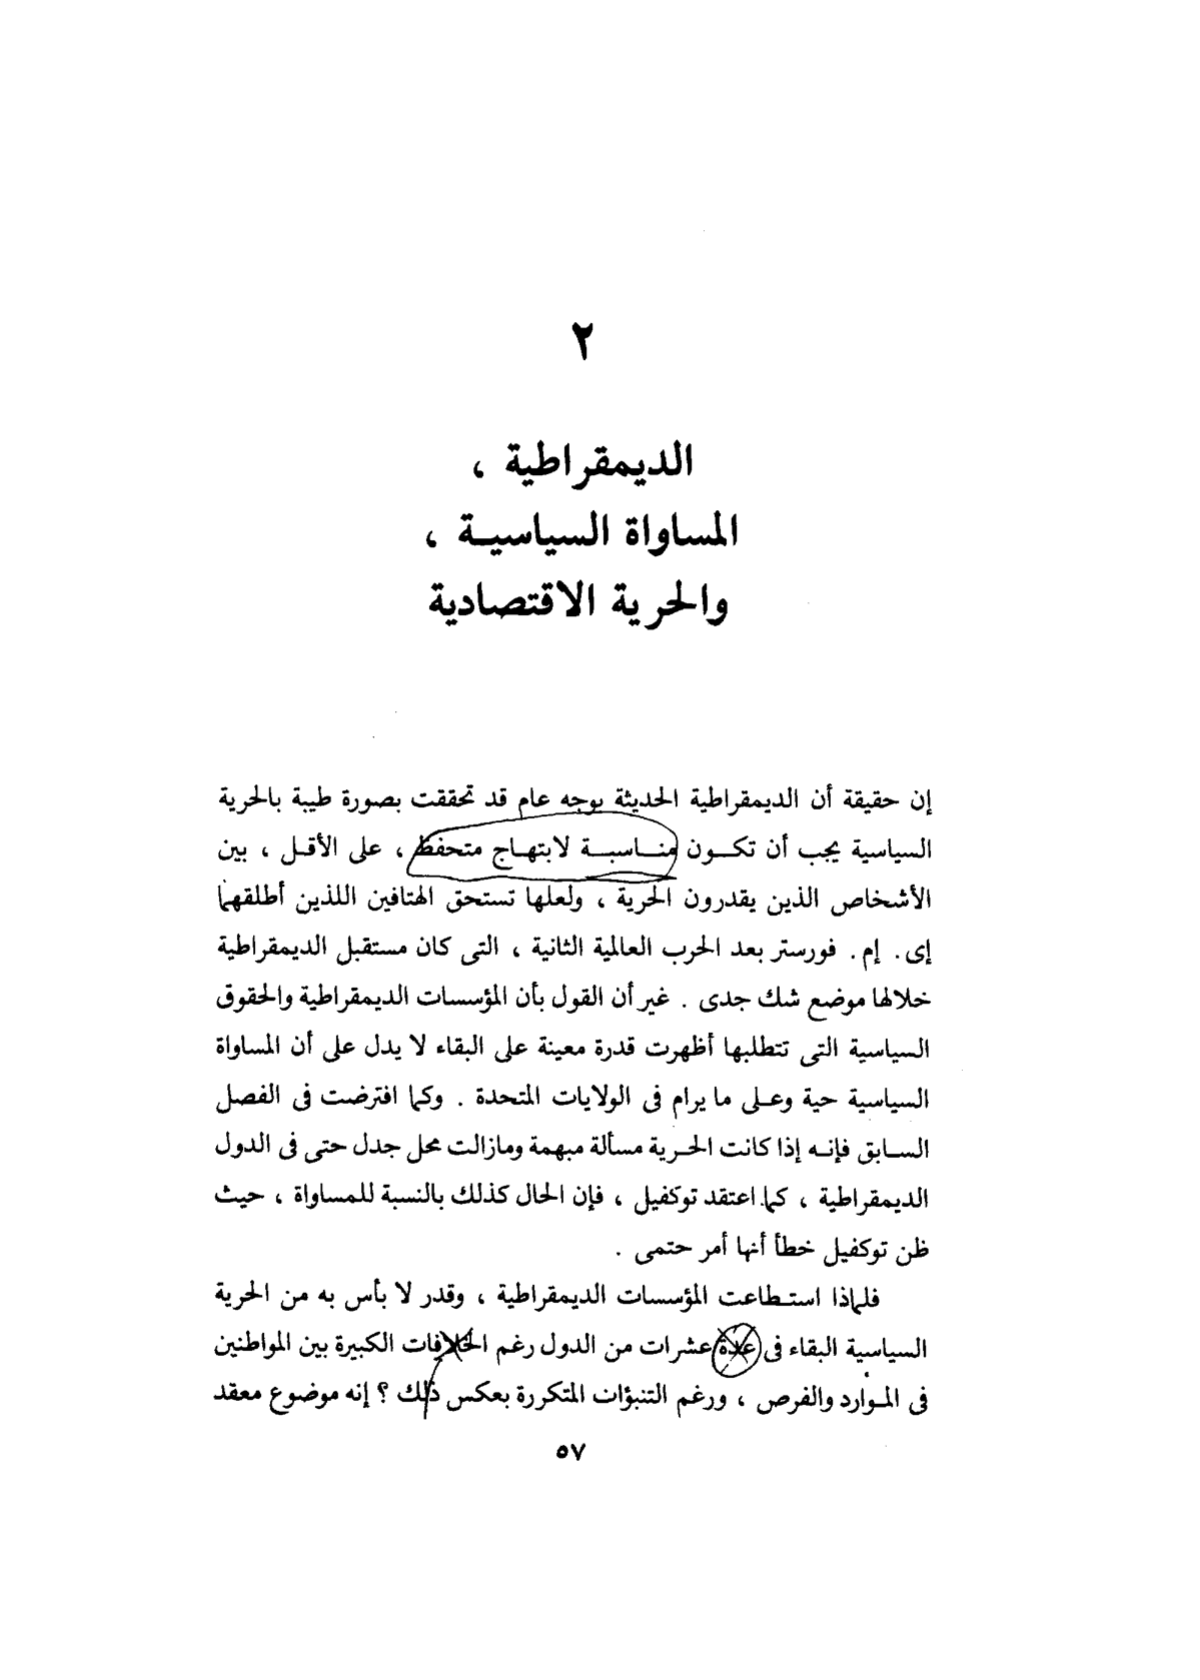 ٢
الديمقراطية ،
المساواة السياسيـة ،
والحرية الاقتصادية
إن حقيقة أن الديمقراطية الحديثة بوجه عام قد تحققت بصورة طيبة بالحرية
السياسية يجب أن تكـون مناسبـة لابتهـاج متحفظ ، على الأقـل ، بين
الأشخاص الذين يقدرون الحرية ، ولعلها تستحق الهتافين اللذين أطلقهما
إى . إم . فورستر بعد الحرب العالمية الثانية ، التى كان مستقبل الديمقراطية
خلالها موضع شك جدى . غير أن القول بأن المؤسسات الديمقراطية والحقوق
السياسية التى تتطلبها أظهرت قدرة معينة على البقاء لا يدل على أن المساواة
السياسية حية وعـلى ما يرام فى الولايات المتحدة . وكما افترضت فى الفصل
السـابق فإنـه إذا كانت الحـرية مسألة مبهمة ومازالت محل جدل حتى فى الدول
الديمقراطية ، كما اعتقد توكفيل ، فإن الحال كذلك بالنسبة للمساواة ، حيث
ظن توكفيل خطأ أنها أمر حتمى .
فلماذا استـطاعت المؤسسات الديمقراطية ، وقدر لا بأس به من الحرية
السياسية البقاء فى عدة عشرات من الدول رغم الخلافات الكبيرة بين المواطنين
فى المـوارد والفرص ، ورغم التنبؤات المتكررة بعكس ذلك ؟ إنه موضوع معقد
٥٧